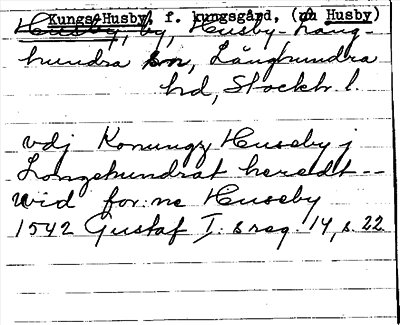 Kungs-Husby, f. kungsgård, (nu Husby)
Husby, by, Husby-Lång-
hundra sn, Långhundra
hd, Stockh. l.
vdj Konungz Huseby j
Longehundrat heredt --
wid for:ne Huseby
1542 Gustaf I:s reg. 14, s. 22.